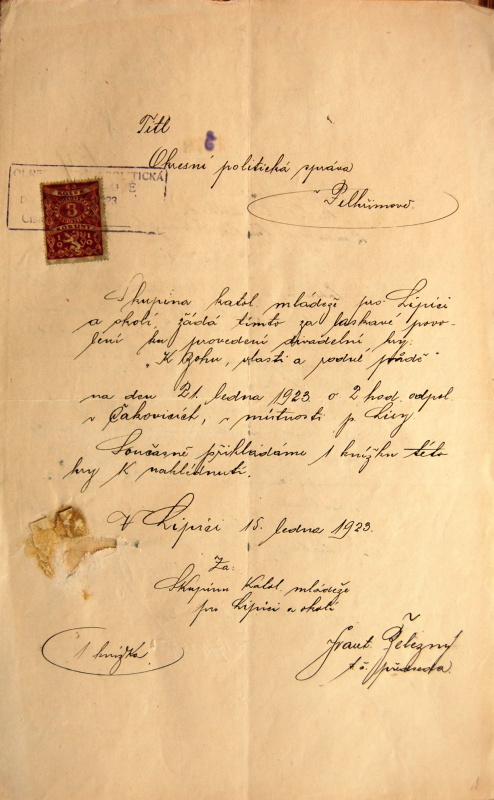 Titl
Okresní politická správa
v Pelhřimově.
OKRESNÍ POLITICKÁ
KOLKY
3
KORUNY
Skupina katol. mládeže pro Lipici
a okolí, žádá tímto za laskavé povo-
lení ku provedení divadelní hry:
"K Bohu, vlasti a rodné půdě"
na den 21. ledna 1923 o 2 hod. odpol.
v Čakovicích, v místnosti p. Lisy.
Současně přikládáme 1 knížku této
hry k nahlédnutí.
V Lipici 15. ledna 1923.
Za:
Skupinu katol. mládeže
pro Lipici a okolí
1 knížka.
Frant. Železný
t. č. předseda.